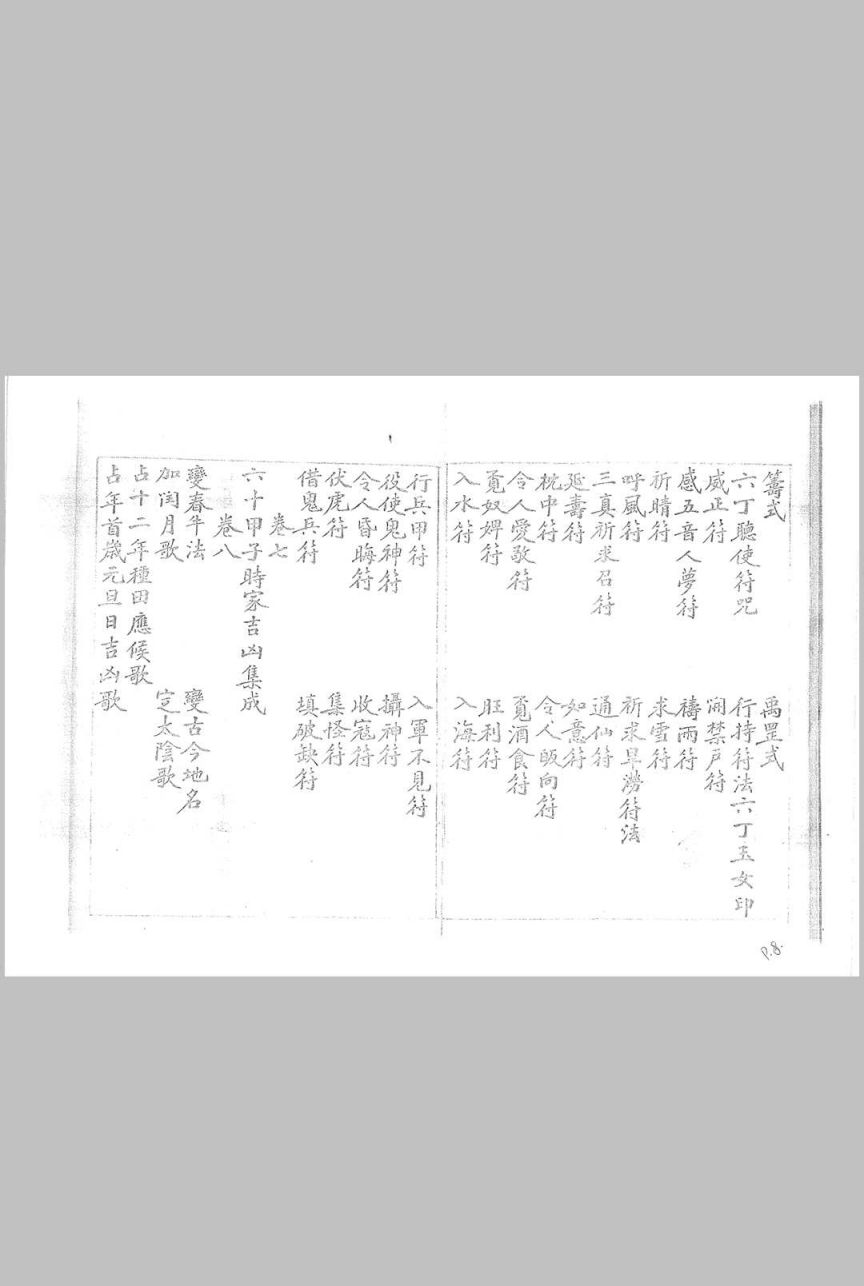 籌式　禹罡式
六丁聽使符咒　行持符法六丁玉女印
威正符　開禁戸符
感五音人夢符　禱雨符
祈晴符　求雪符
呼風符　祈求旱澇符法
三真祈求召符　通仙符
延壽符　如意符
枕中符　令人皈向符
令人愛敬符　覓酒食符
覓奴婢符　旺利符
入水符　入海符
行兵甲符　入軍不見符
役使鬼神符　攝神符
令人昏晦符　收寇符
伏虎符　集怪符
借鬼兵符　填破缺符
卷七
六十甲子時家吉凶集成
卷八
變春牛法　變古今地名
加閏月歌　定太陰歌
占十二年種田應候歌
占年首歲元旦日吉凶歌
P.8.